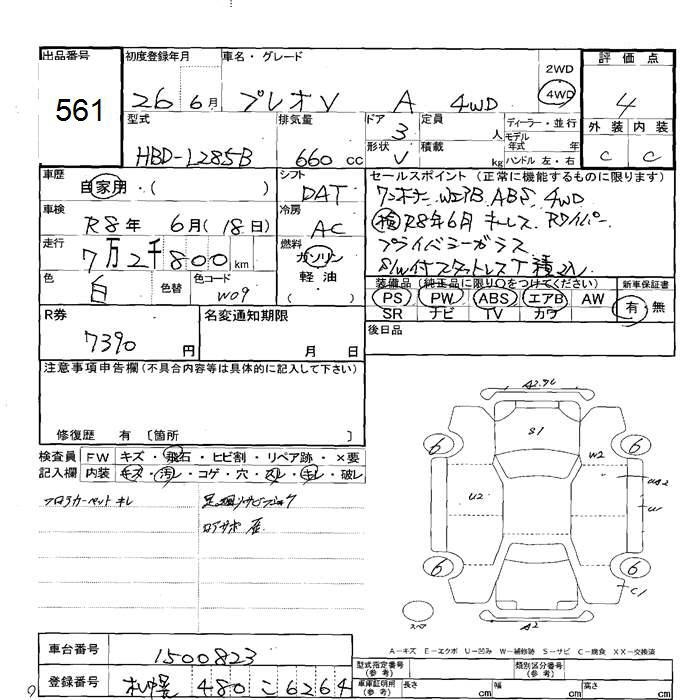 出品番号
561
初度登録年月
26 6月
車名・グレード
プレオV A 4WD
2WD
4WD
評価点
4
型式
HBD-L285B
排気量
660 cc
ドア
3
形状
V
定員
人
積載
kg
ディーラー・並行
モデル
年式 年
ハンドル 左・右
外装 内装
C C
車歴
自家用・( )
シフト
DAT
車検
R8年 6月(18日)
冷房
AC
走行
7万2千800km
燃料
ガソリン
軽油
( )
色
白
色替
色コード
W09
セールスポイント (正常に機能するものに限ります)
ワンオーナー WエアB ABS 4WD
検 R8年6月 キーレス Rワイパー
プライバシーガラス
S/W付スタットレスT積込
装備品(純正品に限り○をつけてください)
PS PW ABS エアB AW
SR ナビ TV カワ
新車保証書
有・無
R券
7390円
名変通知期限
月 日
後日品
注意事項申告欄(不具合内容等は具体的に記入して下さい)
修復歴 有 〔箇所 〕
検査員
記入欄
FW キズ・飛石・ヒビ割・リペア跡・×要
内装 キズ・汚レ・コゲ・穴・スレ・キレ・破レ
フロアカーペット キレ
足廻リサビ
ロアサポ 座
A2
S1
6 6
W2
U2
W
6 6
C1
スペア
A2
A-キズ E-エクボ U-凹み W-補修跡 S-サビ C-腐食 XX-交換済
車台番号
1500823
登録番号
札幌 480 こ 6264
型式指定番号
(参考)
類別区分番号
(参考)
車庫証明用
(参考)
長さ cm 幅 cm 高さ cm